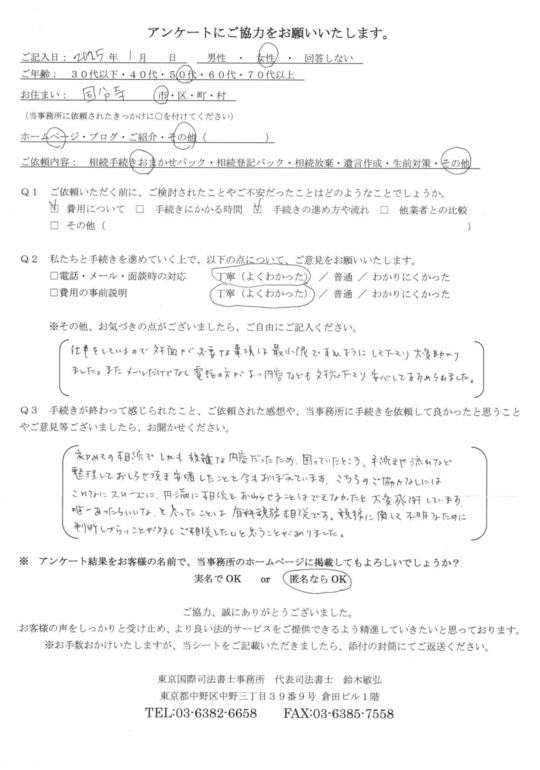 アンケートにご協力をお願いいたします。
ご記入日：2025年 1月 日 男性 ・ 女性 ・ 回答しない
ご年齢：３０代以下・４０代・５０代・６０代・７０代以上
お住まい：国分寺 市・区・町・村
（当事務所に依頼されたきっかけに○を付けてください）
ホームページ・ブログ・ご紹介・その他（ ）
ご依頼内容：相続手続きおまかせパック・相続登記パック・相続放棄・遺言作成・生前対策・その他
Ｑ１ ご依頼いただく前に、ご検討されたことやご不安だったことはどのようなことでしょうか。
☑ 費用について □ 手続きにかかる時間 ☑ 手続きの進め方や流れ □ 他業者との比較
□ その他（ ）
Ｑ２ 私たちと手続きを進めていく上で、以下の点について、ご意見をお願いいたします。
□電話・メール・面談時の対応 丁寧（よくわかった） ／ 普通 ／ わかりにくかった
□費用の事前説明 丁寧（よくわかった） ／ 普通 ／ わかりにくかった
※その他、お気づきの点がございましたら、ご自由にご記入ください。
仕事をしているので対面が必要な事項は最小限ですむようにして下さり大変助かり
ました。またメールだけでなく電話の方がよい内容なども対応下さり安心してすすめられました。
Ｑ３ 手続きが終わって感じられたこと、ご依頼された感想や、当事務所に手続きを依頼して良かったと思うこと
やご意見等ございましたら、お聞かせください。
初めての相続でしかも複雑な内容だったため、困っていたところ、手続きや流れなど
整理しておしらせ頂き安堵したことを今もおぼえています。こちらのご協力なしには
これなにスムーズに、円満に相続をおわらせることはできなかったと大変感謝しています。
唯一あったらいいな、と思ったことは有料税務相談です。税務に関して不明なために
判断しづらいことが多くご相談したいと思うことがありました。
※ アンケート結果をお客様の名前で、当事務所のホームページに掲載してもよろしいでしょうか？
実名で OK or 匿名なら OK
ご協力、誠にありがとうございました。
お客様の声をしっかりと受け止め、より良い法的サービスをご提供できるよう精進していきたいと思っております。
※お手数おかけいたしますが、当シートをご記載いただきましたら、添付の封筒にてご返送ください。
東京国際司法書士事務所 代表司法書士 鈴木敏弘
東京都中野区中野三丁目３９番９号 倉田ビル１階
TEL:03-6382-6658 FAX:03-6385-7558